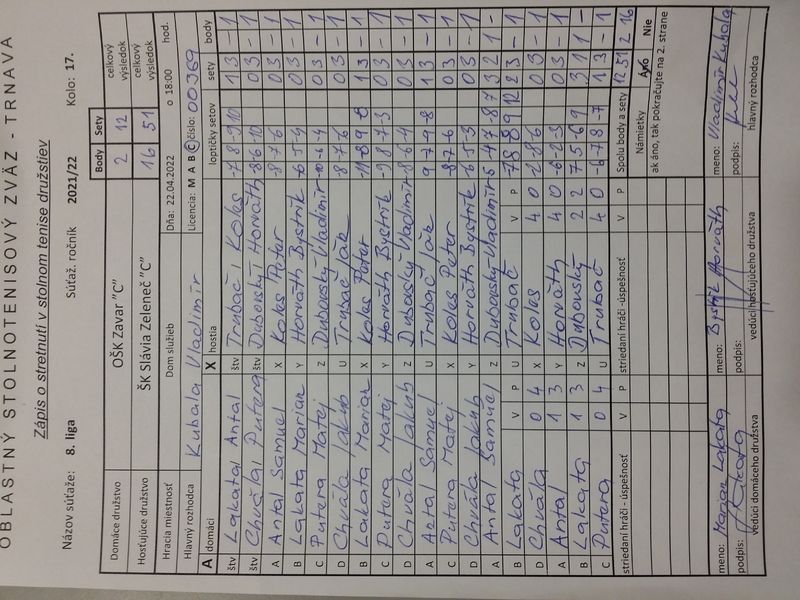 OBLASTNÝ STOLNOTENISOVÝ ZVÄZ - TRNAVA
Zápis o stretnutí v stolnom tenise družstiev
Názov súťaže: 8. liga Súťaž. ročník 2021/22 Kolo: 17.
Body Sety celkový výsledok
Domáce družstvo OŠK Zavar "C" 2 12
Hosťujúce družstvo ŠK Slávia Zeleneč "C" 16 51 celkový výsledok
Hracia miestnosť Dom služieb Dňa: 22.04.2022 o 18:00 hod.
Hlavný rozhodca Kubala Vladimír Licencia: M A B C číslo: 00369
A domáci X hostia loptičky setov sety body
štv Lakata Antal štv Trubač Kolos -7 8 -8 -9 -10 1 3 - 1
štv Chvála Putera štv Dubovský Horváth 0 3 - 1
A Antal Samuel X Kolos Peter 8 -7 -6 0 3 - 1
B Lakata Marian Y Horváth Bystrík -6 -5 -9 0 3 - 1
C Putera Matej Z Dubovský Vladimír -10 -6 -4 0 3 - 1
D Chvála Jakub U Trubač Ján 8 -7 -6 0 3 - 1
B Lakata Marian X Kolos Peter 1 3 - 1
C Putera Matej Y Horváth Bystrík 0 3 - 1
D Chvála Jakub Z Dubovský Vladimír -8 -6 -4 0 3 - 1
A Antal Samuel U Trubač Ján 9 -7 9 -8 1 3 - 1
C Putera Matej X Kolos Peter 8 -7 -6 0 3 - 1
D Chvála Jakub Y Horváth Bystrík -6 -5 -3 0 3 - 1
A Antal Samuel Z Dubovský Vladimír 5 -4 7 -8 7 3 2 1 -
B Lakata V P U Trubač V P 7 8 8 9 12 2 3 - 1
D Chvála 0 4 X Kolos 4 0 0 3 - 1
A Antal 1 3 Y Horváth 4 0 -6 -2 -3 0 3 - 1
B Lakata 1 3 Z Dubovský 2 2 7 5 -6 9 3 1 1 -
C Putera 0 4 U Trubač 4 0 -6 7 -8 -7 1 3 - 1
striedaní hráči - úspešnosť V P striedaní hráči -úspešnosť V P Spolu body a sety 12 51 2 16
Námietky Áno Nie
ak áno, tak pokračujte na 2. strane
meno: Marian Lakata meno: Bystrík Horváth meno: Vladimír Kubala
podpis: Lakata podpis: podpis:
vedúci domáceho družstva vedúci hosťujúceho družstva hlavný rozhodca